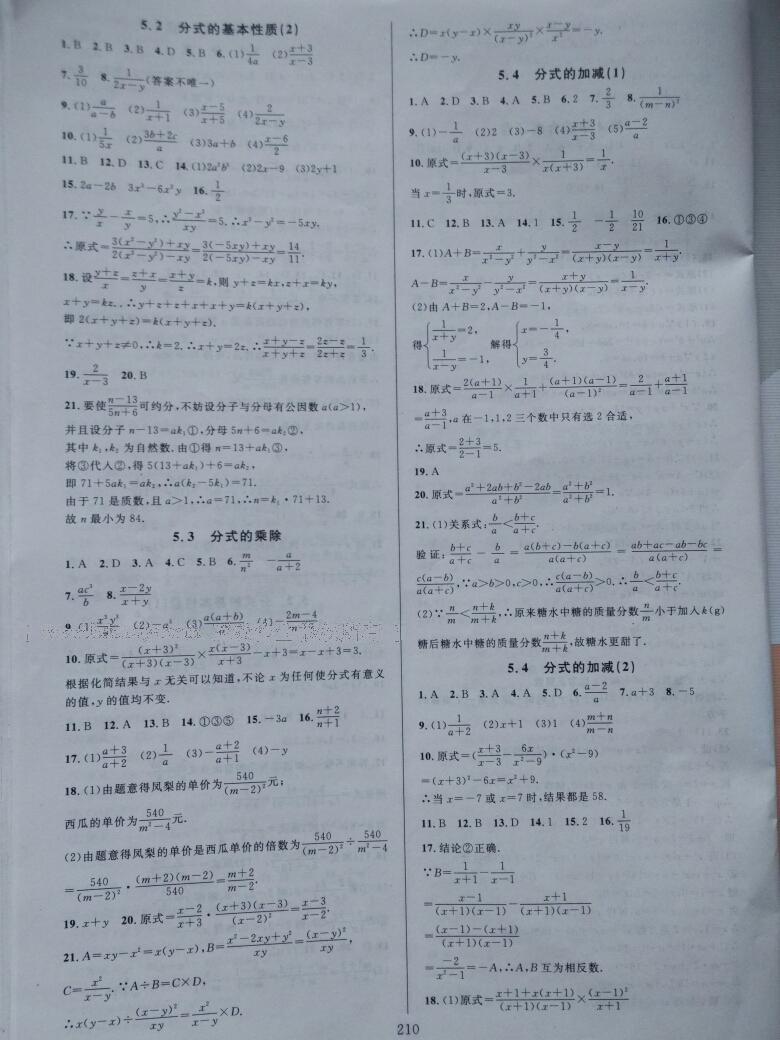 5.2 分式的基本性质(2)
1. B 2. B 3. B 4. D 5. B 6. (1) 1/(4a) (2) (x+3)/(x-3)
7. 3/10 8. 1/(2x-y) (答案不唯一)
9. (1) a/(a-b) (2) 1/(x+1) (3) (x-5)/(x+5) (4) 2/(2x-y)
10. (1) 1/(5x) (2) (3b+2c)/a (3) 3a+b (4) (x-6)/2
11. B 12. D 13. C 14. (1) 2a²b³ (2) 2x-9 (3) 2y+1
15. 2a-2b 3x³-6x²y 16. 1/2
17. ∵ y/x - x/y = 5, ∴ (y²-x²)/(xy) = 5. ∴ x²-y² = -5xy.
∴原式 = (3(x²-y²)+xy)/(2(x²-y²)-xy) = (3(-5xy)+xy)/(2(-5xy)-xy) = 14/11.
18. 设 (y+z)/x = (z+x)/y = (x+y)/z = k, 则 y+z=kx, z+x=ky,
x+y=kz. ∴ y+z+z+x+x+y=k(x+y+z),
即 2(x+y+z)=k(x+y+z).
∵ x+y+z≠0, ∴ k=2. ∴ x+y=2z. ∴ (x+y-z)/(x+y+z) = (2z-z)/(2z+z) = 1/3.
19. 2/(x-3) 20. B
21. 要使 (n-13)/(5n+6) 可约分, 不妨设分子与分母有公因数 a(a>1),
并且设分子 n-13=ak₁①, 分母 5n+6=ak₂②,
其中 k₁, k₂ 为自然数. 由①得 n=13+ak₁③,
将③代人②, 得 5(13+ak₁)+6=ak₂,
即 71+5ak₁=ak₂, ∴ a(k₂-5k₁)=71.
由于 71 是质数, 且 a>1, ∴ a=71, ∴ n=k₁·71+13.
故 n 最小为 84.
5.3 分式的乘除
1. A 2. D 3. A 4. C 5. B 6. m/n² -a/(a+2)
7. ac³/b 8. (x-2y)/(x+y)
9. (2) -a³ (3) a(a+b)
10. 原式 = (x+3)²/((x+3)(x-3)) × x(x-3)/(x+3) - x+3 = x-x+3=3.
根据化简结果与 x 无关可以知道, 不论 x 为任何使分式有意义
的值, y 的值均不变.
11. B 12. A 13. B 14. ①③⑤ 15. -3a 16. (n+2)/(n+1)
17. (1) (a+3)/(a+2) (2) 1/a (3) -(a+2)/(a+1) (4) -y
18. (1) 由题意得凤梨的单价为 540/(m-2)² 元;
西瓜的单价为 540/(m²-4) 元.
(2) 由题意得凤梨的单价是西瓜单价的倍数为 540/(m-2)² ÷ 540/(m²-4)
= 540/(m-2)² · (m+2)(m-2)/540 = (m+2)/(m-2).
19. x+y 20. 原式 = (x-2)/(x+3) · (x+3)(x-3)/(x-2)² = (x-3)/(x-2).
21. A=xy-x²=x(y-x), B= (x²-2xy+y²)/(xy) = (x-y)²/(xy),
C= x²/(x-y). ∵ A÷B=C×D,
∴ x(y-x) ÷ (x-y)²/(xy) = x²/(x-y) × D.
∴ D=x(y-x) × xy/(x-y)² × (x-y)/x² = -y.
∴ D=-y.
5.4 分式的加减(1)
1. A 2. D 3. B 4. A 5. B 6. 2 7. 2/3 8. 1/(m-n)²
9. (1) -1/a (2) 2 (3) -8 (4) (x+3)/(x-3) (5) (a-2)/a
10. 原式 = (x+3)(x-3)/(x-3) × 1/(x(x+3)) = 1/x.
当 x= 1/3 时, 原式=3.
11. C 12. B 13. A 14. 1 15. 1/2 -1/2 10/21 16. ①③④
17. (1) A+B= x/(x²-y²) + y/(x²-y²) = (x-y)/((x+y)(x-y)) = 1/(x+y).
A-B= x/(x²-y²) - y/(x²-y²) = (x+y)/((x+y)(x-y)) = 1/(x-y).
(2) 由 A+B=2, A-B=-1,
得 { 1/(x+y) = 2, 1/(x-y) = -1, 解得 { x=-1/4, y=3/4.
18. 原式 = 2(a+1)/(a-1) × 1/(a+1) + (a+1)(a-1)/(a-1)² = 2/(a-1) + (a+1)/(a-1)
= (a+3)/(a-1), a 在 -1, 1, 2 三个数中只有选 2 合适,
∴原式 = (2+3)/(2-1) = 5.
19. A
20. 原式 = (a²+2ab+b²-2ab)/(a²+b²) = (a²+b²)/(a²+b²) = 1.
21. (1) 关系式: b/a < (b+c)/(a+c).
验证: (b+c)/(a+c) - b/a = (a(b+c)-b(a+c))/(a(a+c)) = (ab+ac-ab-bc)/(a(a+c)) =
c(a-b)/(a(a+c)), ∵ a>b>0, c>0, ∴ c(a-b)/(a(a+c)) > 0. ∴ b/a < (b+c)/(a+c).
(2) ∵ n/m < (n+k)/(m+k), ∴原来糖水中糖的质量分数 n/m 小于加人 k(g)
糖后糖水中糖的质量分数 (n+k)/(m+k), 故糖水更甜了.
5.4 分式的加减(2)
1. A 2. C 3. A 4. A 5. D 6. (a-2)/a 7. a+3 8. -5
9. (1) 1/(a+2) (2) x+1 (3) 1 (4) (m+n)/(m-n)
10. 原式 = ((x+3)/(x-3) - 6x/(x²-9)) · (x²-9)
=(x+3)²-6x=x²+9.
∴当 x=-7 或 x=7 时, 结果都是 58.
11. B 12. B 13. D 14. 1 15. 2 16. 1/19
17. 结论②正确.
∵ B= 1/(x+1) - 1/(x-1)
= (x-1)/((x+1)(x-1)) - (x+1)/((x+1)(x-1))
= ((x-1)-(x+1))/((x+1)(x-1))
= -2/(x²-1) = -A, ∴ A, B 互为相反数.
18. (1) 原式 = (x+1+x(x+1))/((x+1)(x-1)) × (x-1)²/(x+1)
210